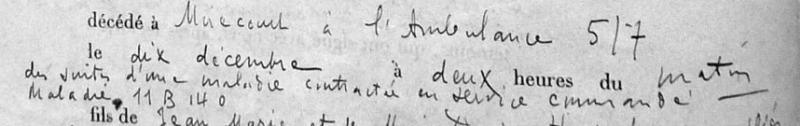 décédé à Mirecourt à l'Ambulance 5/7
le dix décembre à deux heures du matin
des suites d'une maladie contractée en service commandé
Maladie 11 B 140
fils de Jean Marie et de